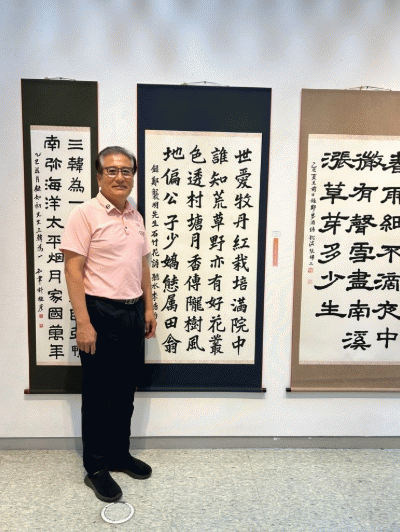 春雨細不滴夜中
微有聲雪盡南溪
漲草芽多少生
世愛牡丹紅栽培滿院中
誰知荒草野亦有好花叢
色透村塘月香傳隴樹風
地偏公子少嬌態属田翁
錄鄭襲明先生石竹花詩
三韓為一
南弥海洋太平烟月家國萬年